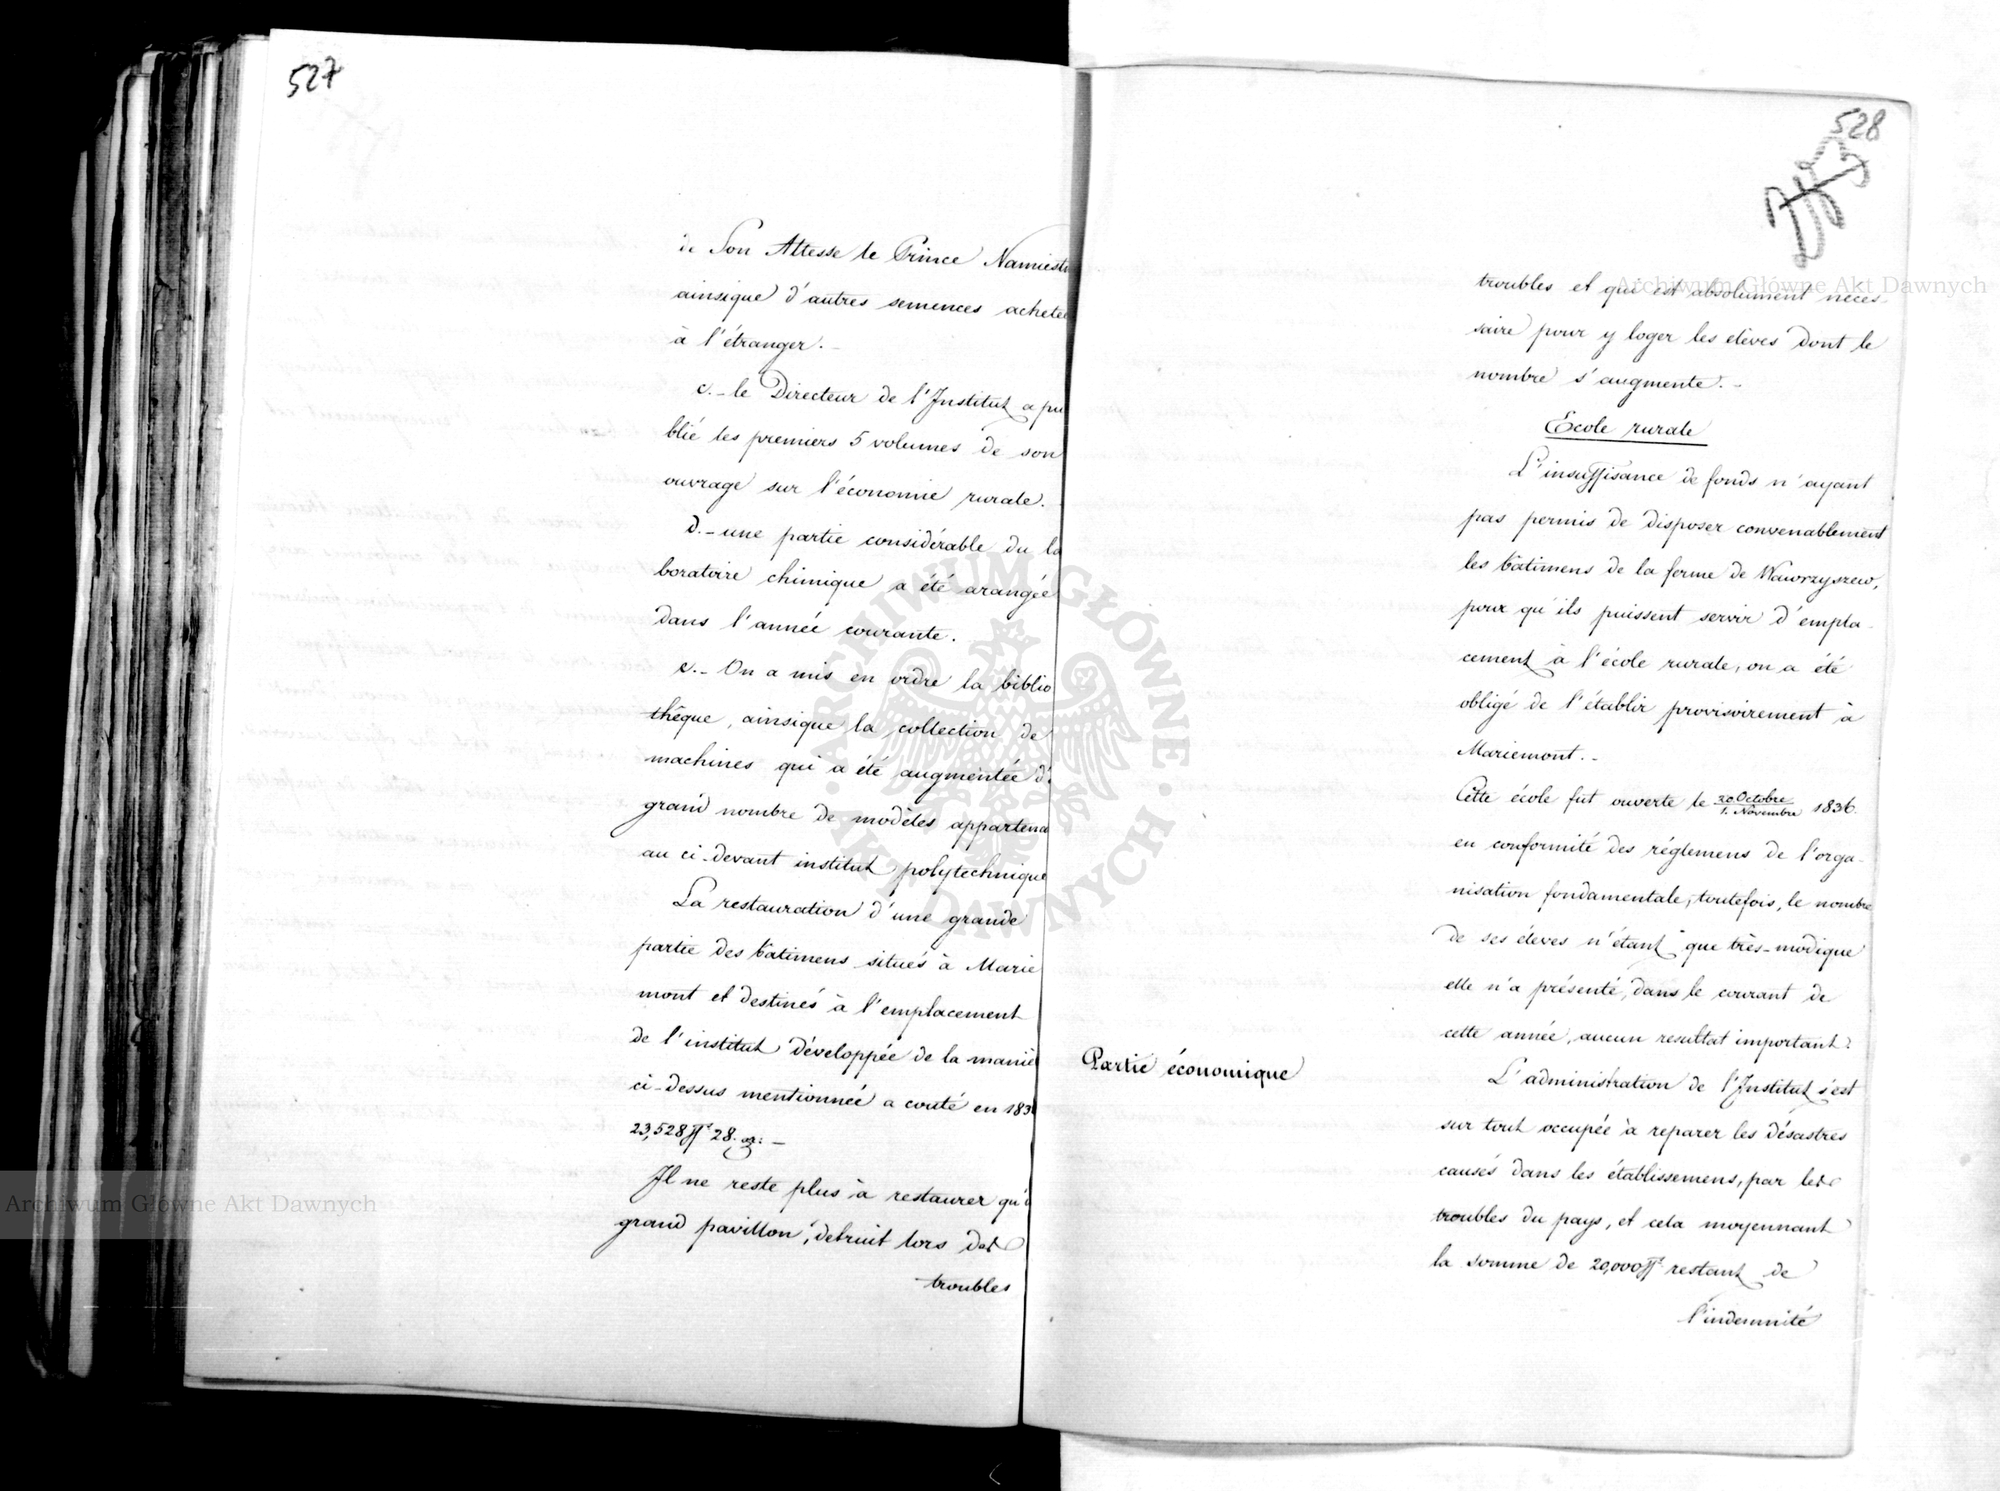 527
de Son Altesse le Prince Namiest
ainsique d'autres semences achetée
à l'étranger. _
c. _ le Directeur de l'Institut a pu
blié les premiers 5 volumes de son
ouvrage sur l'économie rurale.
d. _ une partie considérable du la
boratoire chimique a été arangée
dans l'année courante.
e. _ On a mis en ordre la biblio
thêque, ainsique la collection de
machines qui a été augmentée d'
grand nombre de modèles appartena
au ci-devant institut polytechnique
La restauration d'une grande
partie des bâtimens situés à Marie
mont et destinés à l'emplacement
de l'institut développée de la maniè
ci-dessus mentionnée a couté en 183
23,528 28. _
Il ne reste plus à restaurer qu'
grand pavillon, détruit lors des
troubles
528
troubles et qui est absolument néces-
saire pour y loger les élèves dont le
nombre s'augmente. _
Ecole rurale
L'insuffisance de fonds n'ayant
pas permis de disposer convenablement
les bâtimens de la ferme de Wawrzyszew,
pour qu'ils puissent servir d'empla-
cement à l'école rurale, on a été
obligé de l'établir provisoirement à
Mariemont. _
Cette école fut ouverte le 20 Octobre / 1. Novembre 1836.
en conformité des réglemens de l'orga-
nisation fondamentale, toutefois, le nombre
de ses éleves n'étant que très-modique
elle n'a présenté, dans le courant de
cette année, aucun resultat important.
Partie économique
L'administration de l'Institut s'est
sur tout occupée à reparer les désastres
causés dans les établissemens, par les
troubles du pays, et cela moyennant
la somme de 20,000 restant de
l'indemnité
Archiwum Główne Akt Dawnych
Archiwum Główne Akt Dawnych
ARCHIWUM GŁÓWNE AKT DAWNYCH